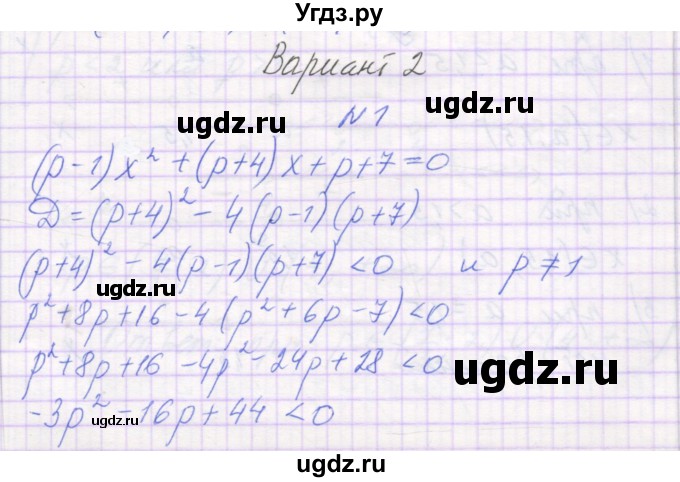 Угдз.ру
Вариант 2
ugdz.ru
ugdz.ru
N1
(p-1)x²+(p+4)x+p+7=0
Д=(p+4)²-4(p-1)(p+7)
ugdz.ru
(p+4)²-4(p-1)(p+7)<0 и p≠1
p²+8p+16-4(p²+6p-7)<0
p²+8p+16-4p²-24p+28<0
ugdz.ru
-3p²-16p+44<0
ugdz.ru
ugdz.ru